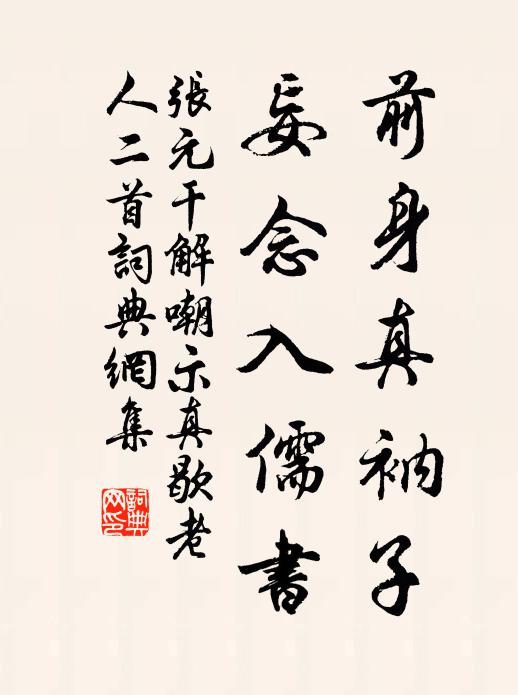 前身真衲子
妄念入儒書
張元干解嘲示真歇老
人二首詞典網集
詞典
网印